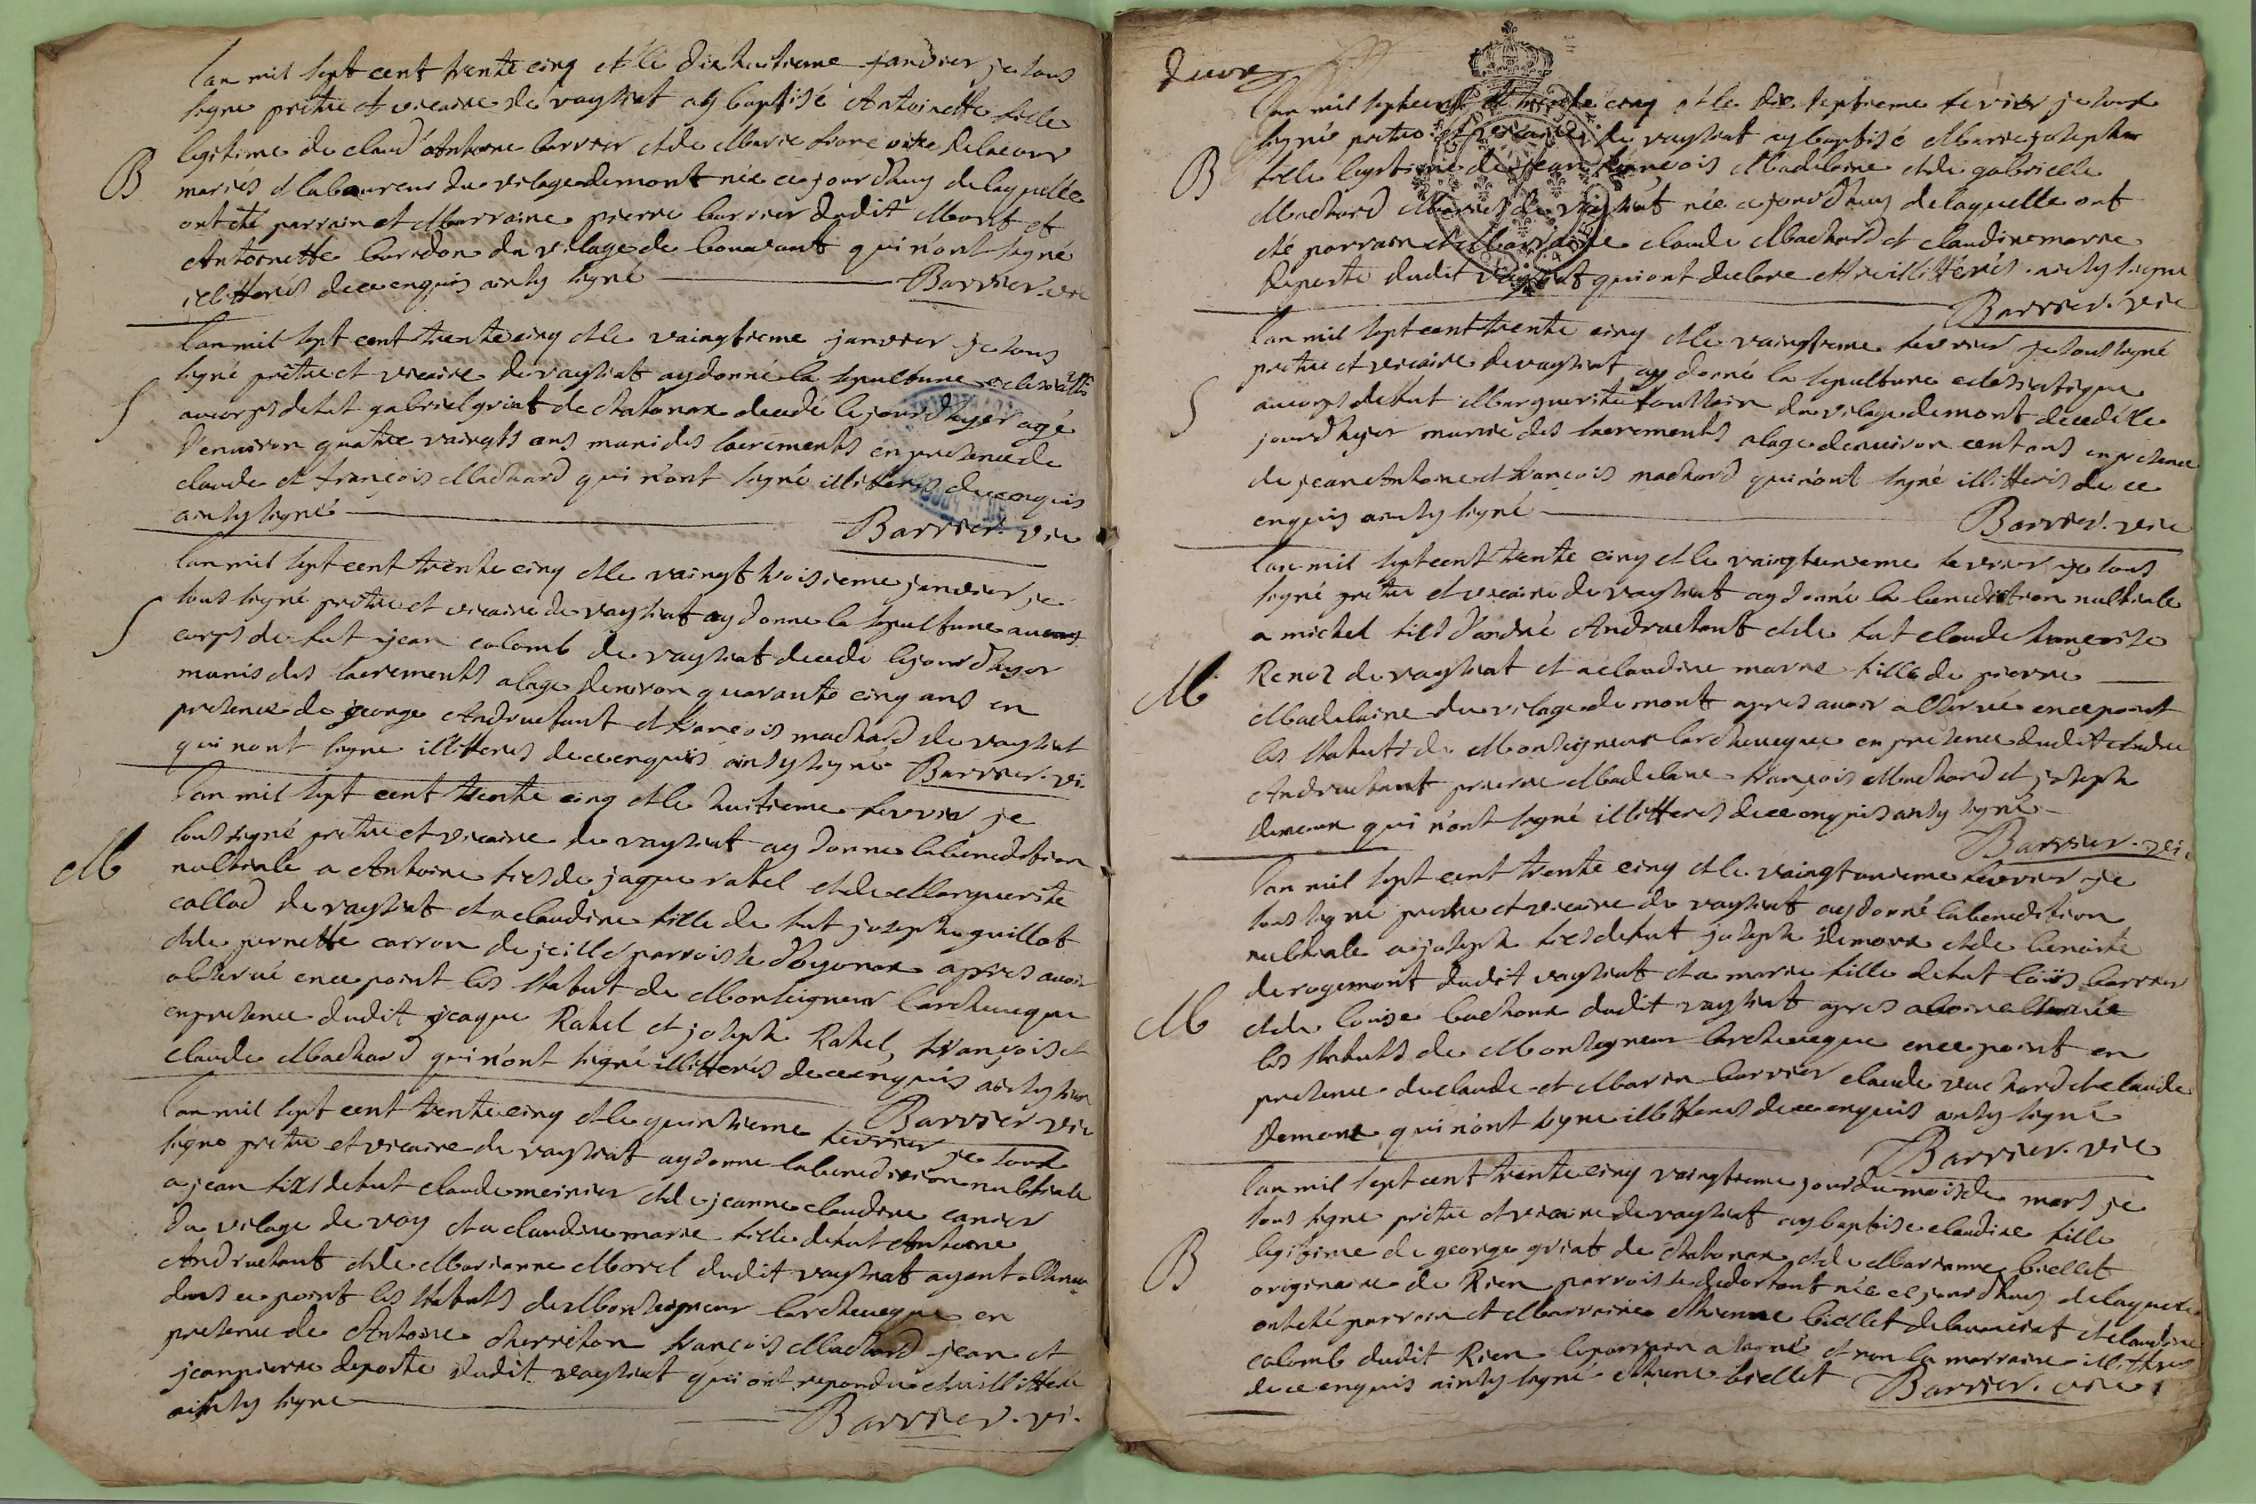 L'an mil sept cent trente cinq et le dix huitieme janvier je sous
signe pretre et vicaire de vaysiat ay baptisé Antoinette fille
legitime de claud Antoine barrier et de Marie
B
mariés et laboureur du vilage de mont née ce jourd'huy de laquelle
ont été parrain et Marraine pierre barrier dudit Mont et
Antoinette du vilage de qui n'ont signé
illitterés de ce enquis ainsy signé
Barrier vic
L'an mil sept cent trente cinq et le vaingtieme janvier je sous
signé prêtre et vicaire de vaysiat ay donné la sepulture
S
au corps de fut gabriel griat de chatonax decede le jour d'hyer agé
d'environ quatre vaingts ans muni des sacrements en presence de
claude et françois Machard qui n'ont signé illiterés de ce enquis
ainsy signé
Barrier. vic
L'an mil sept cent trente cinq et le vaingt troisieme janvier je
sous signé prêtre et vicaire de vaysiat ay donne la sepulture au
S
corps de fut jean colomb de vaysiat decede le jour d'hyer
munis des sacrements a lage denviron quarante cinq ans en
presence de george Andruetant et francois machard de vaysiat
qui n'ont signe illitteres de ce enquis ainsy signé Barrier. vi.
L'an mil sept cent trente cinq et le huitieme fevrier je
sous signé prêtre et vicaire de vaysiat ay donne la benediction
M
nubtiale a Antoine fils de jaque ratel et de Marguerite
collod de vaysiat et a claudine fille de fut joseph guillot
et de pernette carron de jeille parroisse d'oyonax apres avoir
observé en ce point les statut de Monseigneur l'archeveque
en presence dudit jcaque Ratel et joseph Ratel, françois et
claude Machard qui n'ont signé illitterés de ce enquis ainsy signé
Barrier vic
L'an mil sept cent trente cinq et le quinsieme fevrier je sous
signe prêtre et vicaire de vaysiat ay donne la benediction nubtiale
a jean fils de fut claude meinier et de jeanne claudine canier
du vilage de voy et a claudine marie fille de fut Antoine
Andruetant et de Marianne Morel dudit vaysiat ayant observe
dans ce point les statuts de Monseigneur l'archeveque en
presence de Antoine françois Machard jean et
jean pierre deporte dudit vaysiat qui ont repondu etre illitteré
ainsy signe
Barrier. vi.
deux
L'an mil sept cent et trente cinq et le dix septieme fevrier je sous
signé prêtre et vicaire de vaysiat ay baptisé Marie josephte
B
fille legitime de jean françois Madelaine et de gabrielle
Machard Mariés de vaysiat née ce jourd'huy de laquelle ont
été parrain et Marraine claude Machard et claudine marie
deporte dudit vaysiat qui ont declare etre illitterés ainsy signe
Barrier. vic
L'an mil sept cent trente cinq et le vaingtieme fevrier je sous signé
prêtre et vicaire de vaysiat ay donné la sepulture eclesiatique
S
au corps de fut Marguerite du vilage de mont decedée le
jourd'hyer munie des sacrements a lage denviron cent ans en presence
de jean Antoine et francois machard qui n'ont signé illitterés de ce
enquis ainsy signé
Barrier. vic
L'an mil sept cent trente cinq et le vaingtunieme fevrier je sous
signé prêtre et vicaire de vaysiat ay donné la benediction nubtiale
a michel fils d'andré Andruetant et de fut claude françoise
M
Renoz de vaysiat et a claudine marie fille de pierre
Madelaine du vilage de mont apres avoir observé en ce point
les statuts de Monseigneur l'archeveque en presence dudit Andre
Andruetant pierre Madelaine françois Machard et joseph
demoux qui n'ont signé illitterés de ce enquis ainsy signé
Barrier. vic
L'an mil sept cent trente cinq et le vaingtunieme fevrier je
sous signe pretre et vicaire de vaysiat ay donné la benediction
nubtiale a joseph fils de fut joseph demoux et de benoite
de rogemont dudit vaysiat et a marie fille de fut loüis barrier
M
et de louise bachoux dudit vaysiat apres
les statuts de Monseigneur l'archeveque en ce point en
presence de claude et Marin barrier claude et claude
demoux qui n'ont signe illitteres de ce enquis ainsy signé
Barrier. vic
L'an mil sept cent trente cinq vaingtieme jour du mois de mars je
sous signe prêtre et vicaire de vaysiat ay baptise claudine fille
B
legitime de george griat de chatonax et de Marianne biellet
originaire de Rien parroisse de dortant née ce jourd'huy de laquelle
ont été parrain et Marraine Etienne biellet et claudine
colomb dudit Rien le parrain a signé et non la marraine illitteree
de ce enquis ainsy signé Etiene biellet Barrier. vic